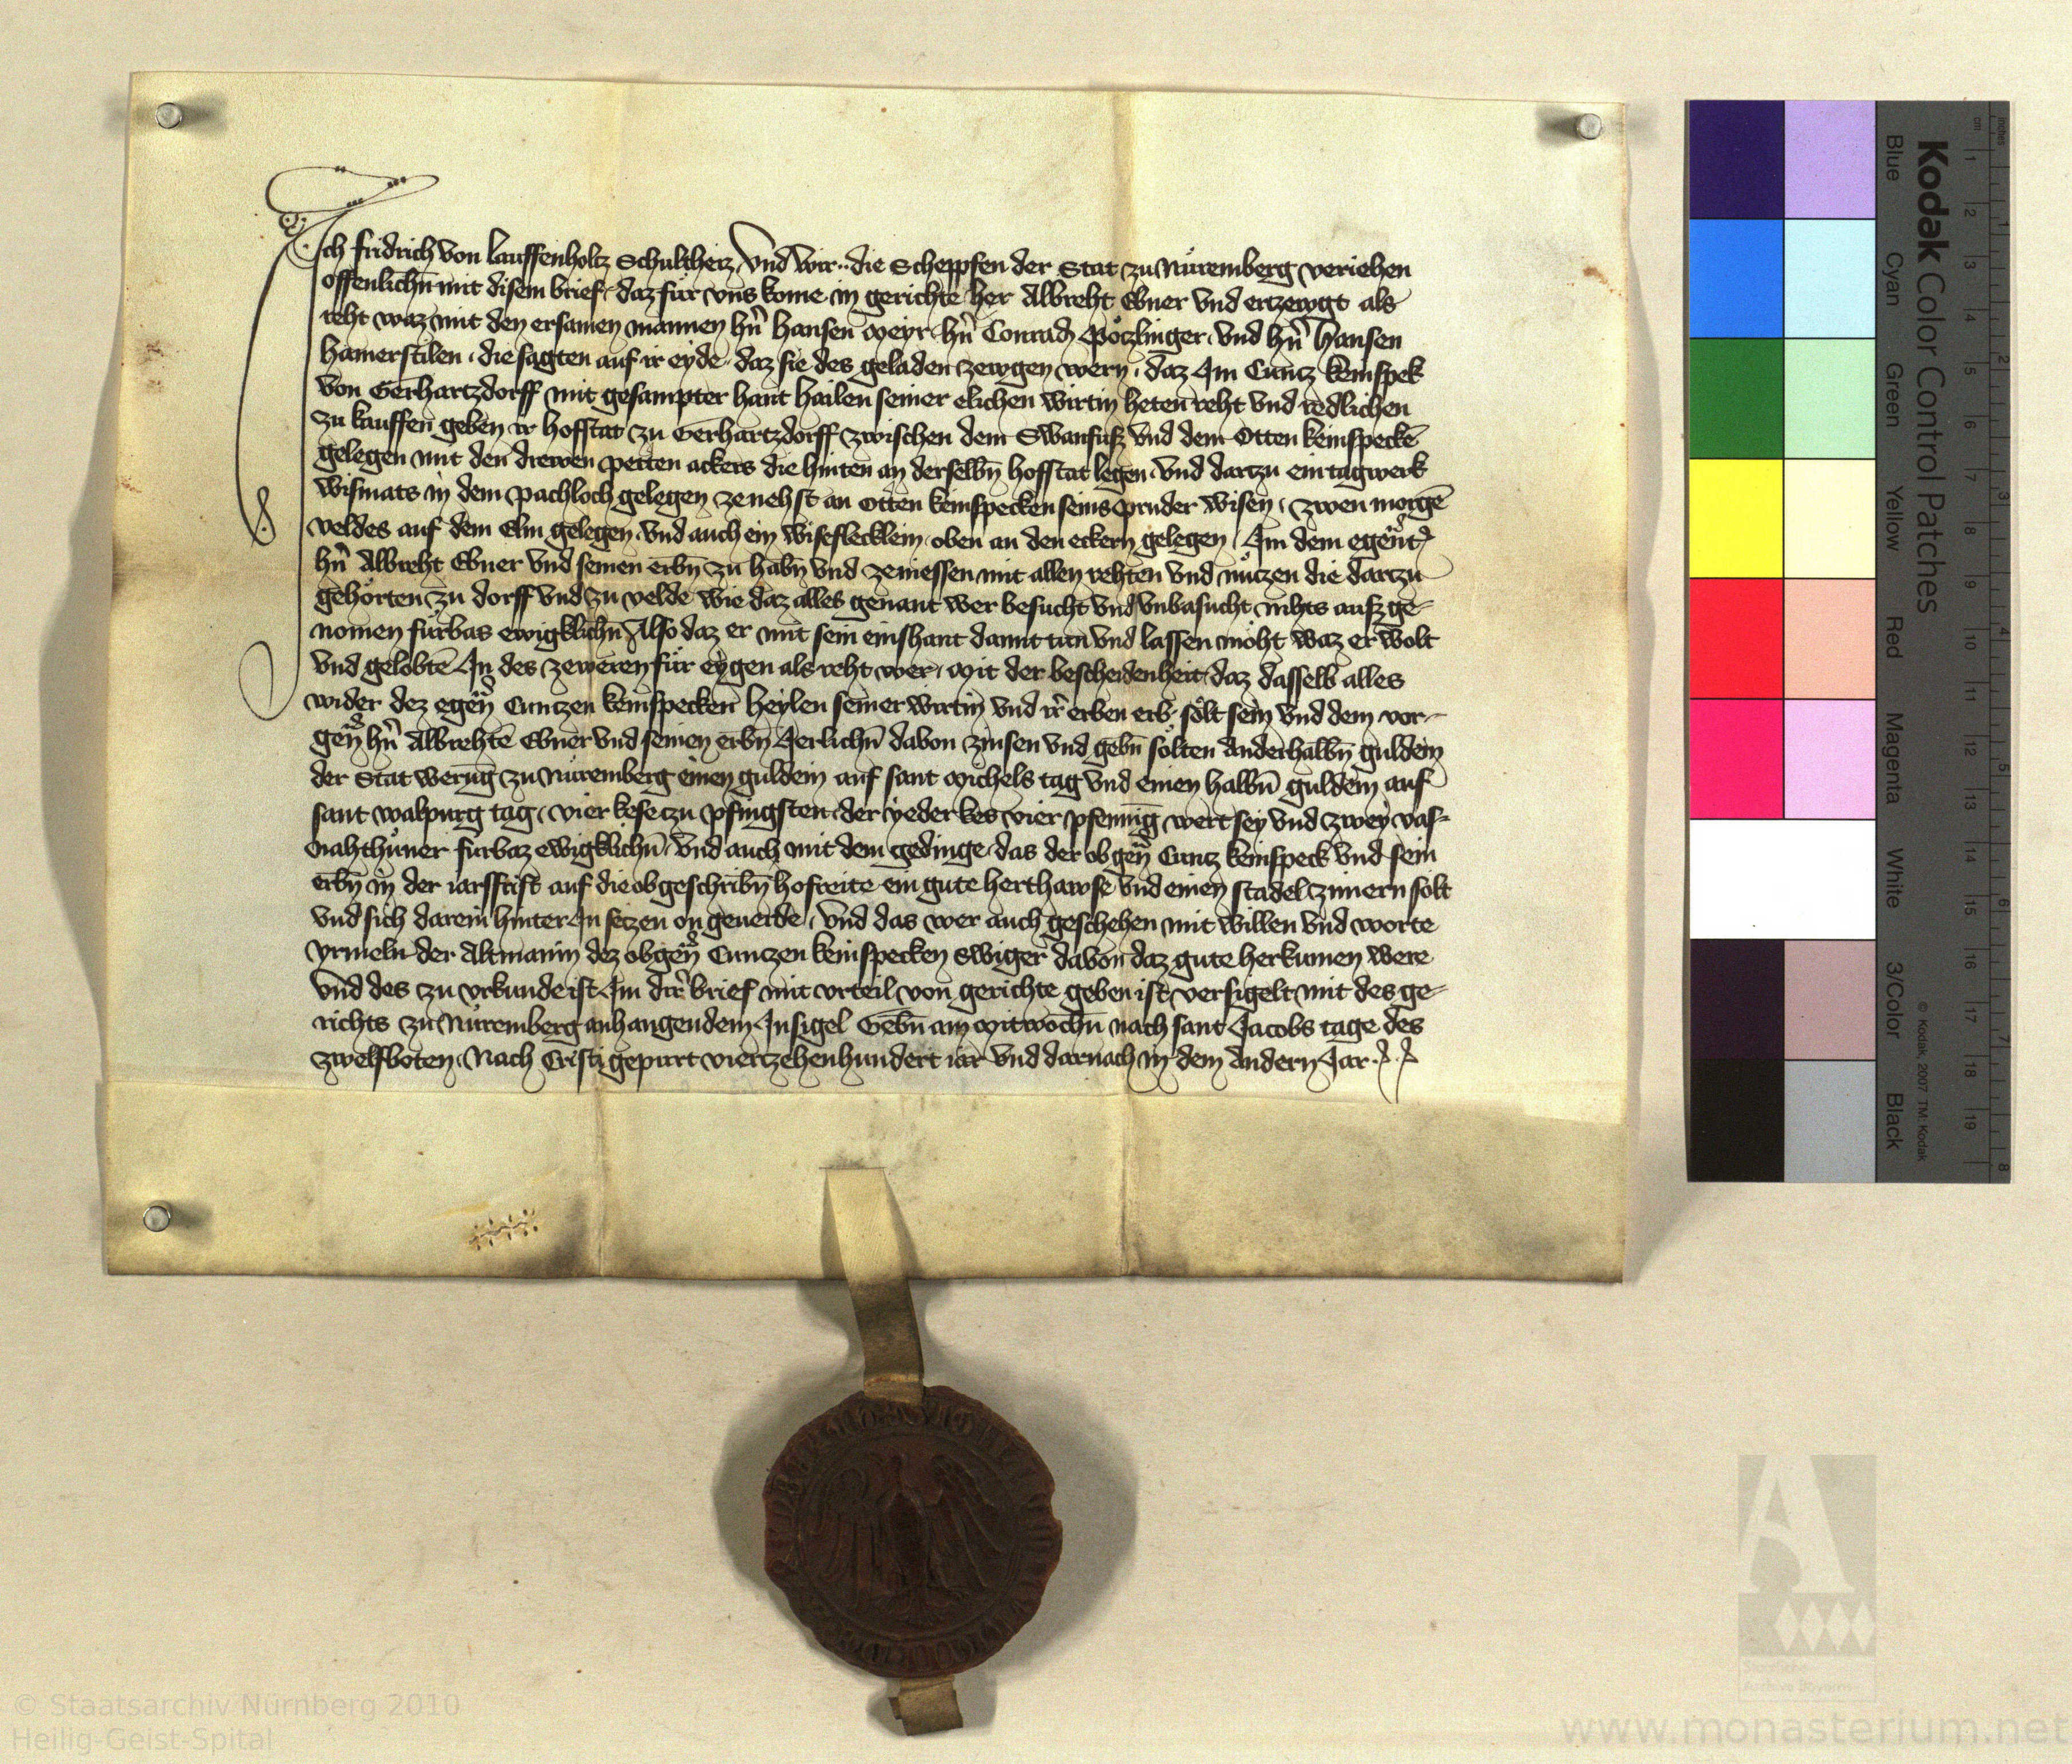 Ich fridrich von Lauffenholtz Schultheiz vnd wir ·· die Scheppfen der Stat zu Nuͤremberg veriehen
offenlichn̄ mit disem brief · daz fur vns kome in gerichte her Albreht Ebner vnd ertzewgt als
reht waz mit den ersamen mannen hn̄ Hansen Meyr · hn̄ Conrad Potzlinger · vnd hn̄ Hansen
Hamerstilen · die sagten auf ir eyde · daz sie des geladen zewgen wern · daz Im Cuntz keinspek
von Gerhartzdorff mit gesampter hant hailen seiner elichen wirtin heten reht vnd redlichen
zu kauffen geben ir hofstat zu Gerhartzdorff zwischen dem Swanfusz vnd dem Otten keinspeckē
gelegen mit den drewen petten ackers die hinten an derselbn̄ hofstat legen · vnd dartzu ein tagwerk
wismats in dem pachloch gelegen zenehst an Otten keinspecken seins pruder wisen · zwen morgē
veldes auf dem Elm gelegen · vnd auch ein wiseflecklein oben an den eckern gelegen · Im dem egen̄t
hn̄ Albreht Ebner vnd seinen erbn̄ zu habn̄ vnd zeniessen mit allen rehten vnd nuͤtzen die dartzu
gehoͤrten zu dorff vnd zu velde wie daz alles genant wer besucht vnd vnbasucht nihts ausz ge-
nomen fuͤrbas ewigklichn̄ Also daz er mit sein einshant damit tun vnd lassen moͤht waz er wolt
vnd gelobtē In des zeweren fuͤr eygen als reht wer · Mit der bescheidenheit daz dasselb alles
wider dez egen̄ Cuntzen keinspecken heylen seiner wirtin vnd ir̄ erben erb soͤlt sein vnd dem vor-
gen̄ hn̄ Albrehtē Ebner vnd seinen erbn̄ Jerlichn̄ davon zinsen vnd gebn̄ soͤlten Anderhalbn̄ guldein
der Stat werūg zu Nuͤremberg einen guldein auf sant Michels tag vnd einen halbn̄ guldein auf
sant walpurg tag · vier kese zu pfingsten · der yeder kes vier pfennīg wert sey vnd zwey vas-
nahthuͤner furbaz ewigklichn̄ · vnd auch mit dem gedinge · das der obgen̄ Cuntz keinspeck vnd sein
erbn̄ in der iarsfrist auf die obgeschribn̄ hofreite ein gute herthawse vnd einen stadel zimern soͤlt
vnd sich darein hinter In setzen on geuerde · vnd das wer auch geschehen mit willen vnd worte
yrmeln der Altmanin dez obgen̄ Cuntzen keinspecken Swiger davon daz gute herkumen were
vnd des zu vrkunde ist Im dir̄ brief mit vrteil von gerichte geben ist versigelt mit des ge-
richts zu Nuͤremberg anhangendem Insigel Gebn̄ am Mitwochn̄ nach sant Jacobs tage des
zwelfboten · Nach Cristi gepurt viertzehenhundert iar vnd darnach in dem Andern Jar ·
Kodak Color Control Patches
Blue Cyan Green Yellow Red Magenta White 3/Color Black
© Kodak, 2007 TM: Kodak
cm 1 2 3 4 5 6 7 8 9 10 11 12 13 14 15 16 17 18 19
inches 1 2 3 4 5 6 7 8
© Staatsarchiv Nürnberg 2010
Heilig-Geist-Spital
www.monasterium.net